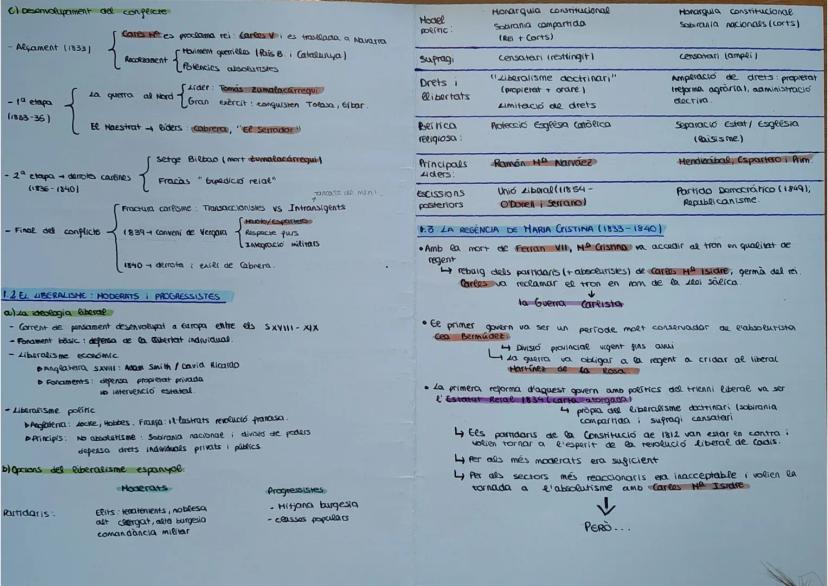 c) Desenvolupament del conflicte
- Alçament (1833)
Carles Mª es proclama rei: Carlos V i es trasllada a Navarra
Recolzament
Moviment guerrilles (País B. i Catalunya)
Potències absolutistes
- 1ª etapa
(1833-35)
La guerra al Nord
Líder: Tomás Zumalacárregui
Gran exèrcit: conquisten Tolosa, Eibar.
El Maestrat → líders: Cabrera, "El Serrador"
- 2ª etapa → derrotes carlines
(1836-1840)
Setge Bilbao (mort Zumalacárregui)
Fracàs "Expedició reial"
- Final del conflicte
Fractura carlisme: Transaccionistes vs Intransigents
1839 → Conveni de Vergara
Maroto/Espartero
Respecte furs
Integració militars
1840 → derrota i exili de Cabrera.
1.2 EL LIBERALISME: MODERATS I PROGRESSISTES
a) La ideologia liberal
- Corrent de pensament desenvolupat a Europa entre els S XVIII - XIX
- Fonament bàsic: defensa de la llibertat individual.
- Liberalisme econòmic
Anglaterra S XVIII: Adam Smith / David Ricardo
Fonaments: defensa propietat privada
no intervenció estatal
- Liberalisme polític
Anglaterra: Locke, Hobbes. França: il·lustrats revolució francesa.
Principis: No absolutisme: Sobirania nacional i divisió de poders
defensa drets individuals privats i públics.
b) Opcions del liberalisme espanyol:
Moderats
Progressistes
Partidaris:
Elits: terratinents, noblesa
alt clergat, alta burgesia
comandància militar
- Mitjana burgesia
- classes populars
Model
polític:
Monarquia constitucional
Sobirania compartida
(Rei + Corts)
Monarquia constitucional
Sobirania nacional (corts)
Sufragi
Censatari (restringit)
Censatari (ampli)
Drets i
llibertats
"Liberalisme doctrinari"
(propietat + ordre)
Limitació de drets
Ampliació de drets: propietat
(reforma agrària), administració
Política
religiosa:
Protecció Església Catòlica
Separació Estat / Església
(laïcisme)
Principals
líders:
Ramón Mª Narváez
Mendizábal, Espartero i Prim.
Escissions
posteriors
Unió Liberal (1854 -
O'Donell i Serrano)
Partido Democrático (1849),
Republicanisme.
1.3 LA REGÈNCIA DE MARIA CRISTINA (1833 - 1840)
• Amb la mort de Ferran VII, Mª Cristina va accedir al tron en qualitat de
regent
↳ rebuig dels partidaris (+ absolutistes) de Carles Mª Isidre, germà del rei.
Carles va reclamar el tron en nom de la llei sàlica.
↓
la Guerra Carlista
• El primer govern va ser un període molt conservador de l'absolutista
Cea Bermúdez
↳ Divisió provincial vigent fins avui
↳ La guerra va obligar a la regent a cridar al liberal
Martínez de la Rosa
• La primera reforma d'aquest govern amb polítics del trienni liberal va ser
l'Estatut Reial 1834 (carta atorgada)
↳ pròpia del liberalisme doctrinari (sobirania
compartida i sufragi censatari
↳ Els partidaris de la Constitució de 1812 van estar en contra i
volien tornar a l'esperit de la revolució liberal de Cadis.
↳ Per als més moderats era suficient
↳ Per als sectors més reaccionaris era inacceptable i volien la
tornada a l'absolutisme amb Carles Mª Isidre
↓
PERÒ...